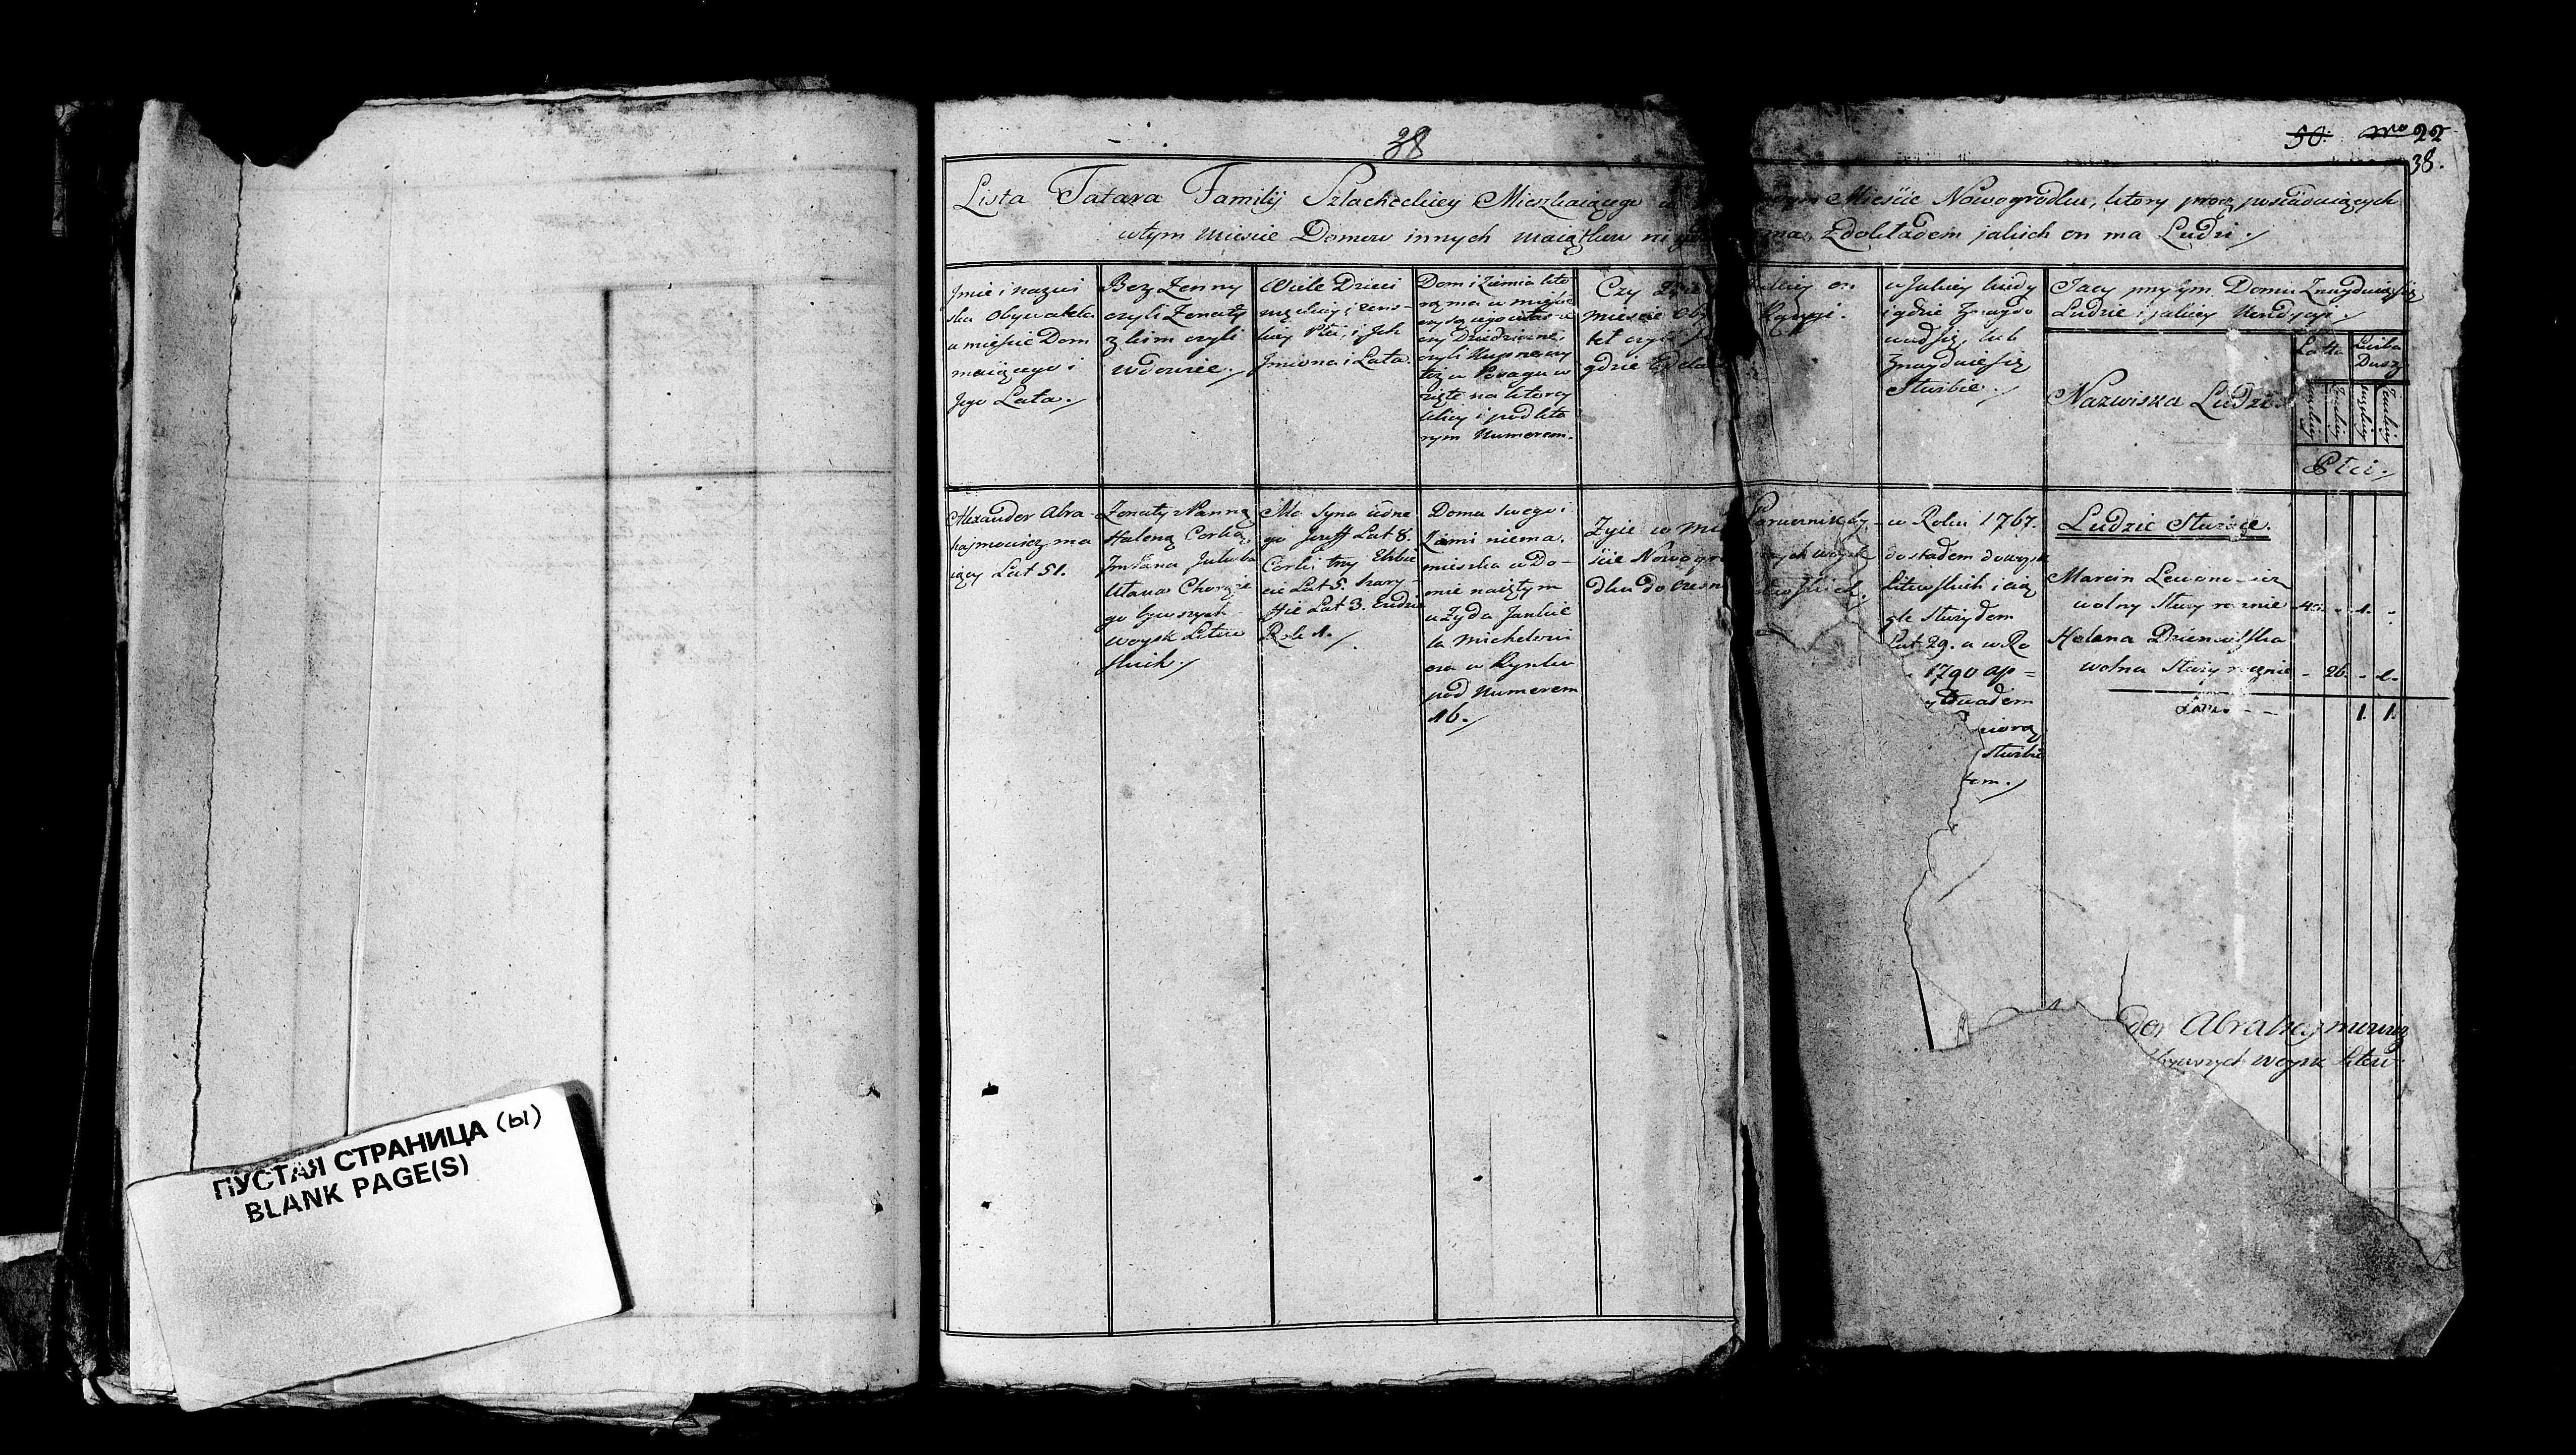 38
50. 22
38.
Lista Tatara Familij Szlacheckiey Mieszkaiącego w Mieście Nowogrodku, ktory procz posiadaiących
wtym miescie Domow innych maiątkow ma, Zdokładem jakich on ma Ludzi
Jmie i nazwi
sko Obywatela
w mieście Dom
maiącego i
Jego Lata.
Bez Żenny
czyli Żenaty
z kim czyli
wdowiec.
Wiele Dzieci
męzkiey i żens-
kiey Płci, i Jch
Jmiona i Lata.
Dom i Ziemia kto
rą ma w mieście
czy są iego własne
czy Dziedziczne,
czyli Kupne czy
też w Posagu w
zięte na ktorey
Ulicy i pod kto
rym Numerem.
Czy
miescie
gdzie
Rangi.
w Jakiey kiedy
i gdzie Znaydo
wał się, lub
Znayduie się
Służbie.
Jacy przytym Domu Znayduią się
Ludzie i jakiey Kondycyi
Nazwiska Ludzi
Latta
Liczba
Dusz
Płci.
Alexander Abra-
hajmowicz ma
iący Lat 51.
Żenaty z Panną
Haleną Corką
Jmśana Jakuba
Ułana Chorąże
go bywszych
woysk Litew
skich.
Ma Syna iedne
go Jozeff Lat 8.
Corki trzy Elżbie
cie Lat 5.
Lat 3.
Rok 1.
Domu swego i
Ziemi niema,
mieszka w Do-
mie naiętym
u Żyda Jankie
la Michelowi
cza w Rynku
pod Numerem
16.
Żyie w
ście Nowogr
dku do czesn
Porucznik by-
w Roku 1767.
dostałem do woysk
Litewskich i cią
gle Służyłem
Lat 29. a w Ro
1790
Służbie
Ludzie Służące.
Marcin Lewonowicz
wolny Służy rocznie - 1. -
Helena
wolna Służy rocznie - 26. - 1.
Latus - - 1. 1.
der Abrahajmowicz
bywszych woysk Litew
ПУСТАЯ СТРАНИЦА (ы)
BLANK PAGE(S)